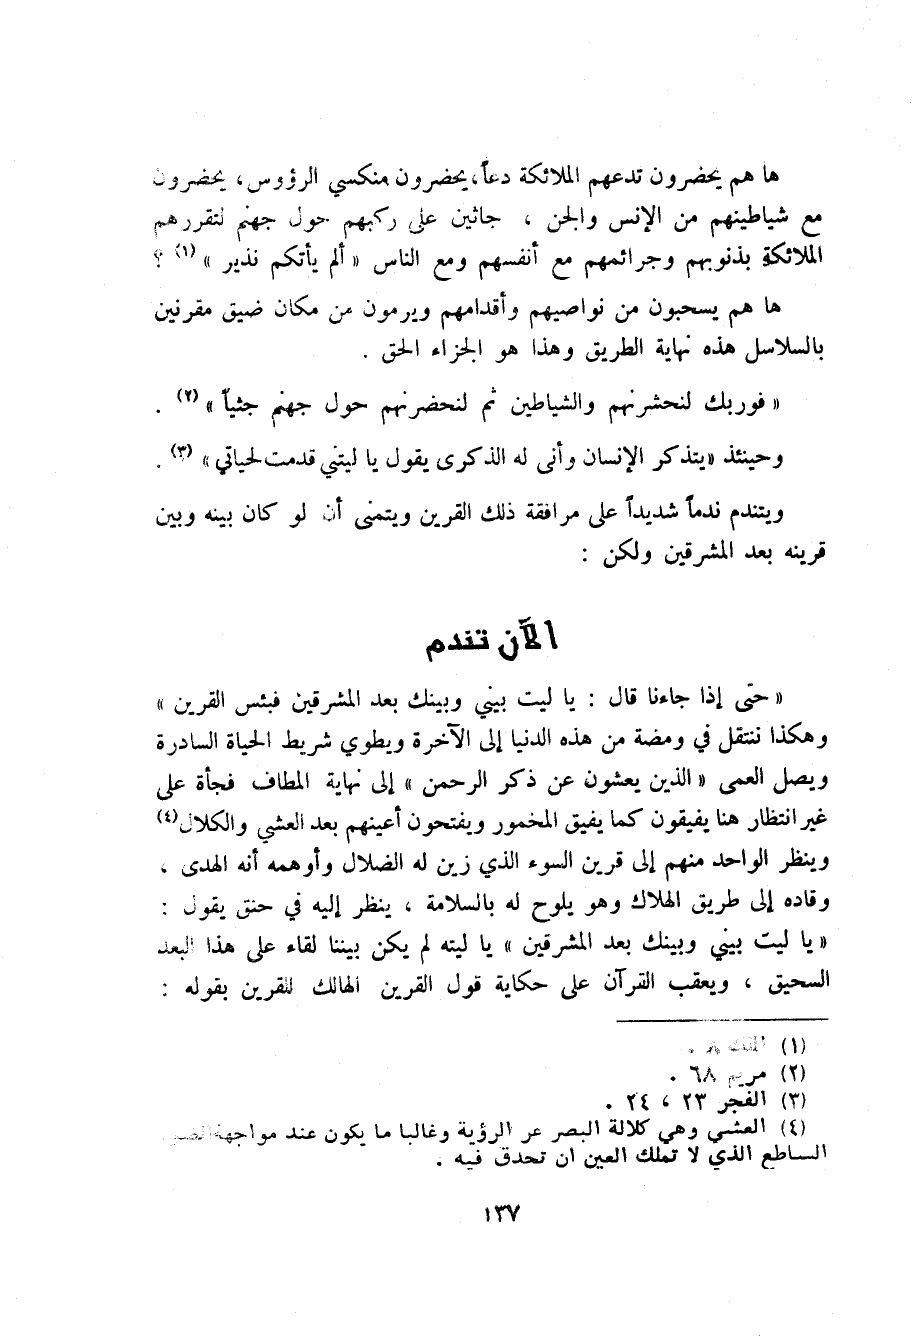 ها هم يحضرون تدعهم الملائكة دعاً، يحضرون منكسي الرؤوس، يحضرون
مع شياطينهم من الإنس والجن ، جاثين على ركبهم حول جهنم لتقررهم
الملائكة بذنوبهم وجرائمهم مع أنفسهم ومع الناس « ألم يأتكم نذير » (١) ؟
ها هم يسحبون من نواصيهم وأقدامهم ويرمون من مكان ضيق مقرنين
بالسلاسل هذه نهاية الطريق وهذا هو الجزاء الحق .
« فوربك لنحشرنهم والشياطين ثم لنحضرنهم حول جهنم جثياً » (٢) .
وحينئذ «يتذكر الإنسان وأنى له الذكرى يقول يا ليتني قدمت لحياتي» (٣) .
ويتندم ندماً شديداً على مرافقة ذلك القرين ويتمنى أن لو كان بينه وبين
قرينه بعد المشرقين ولكن :
الآن تندم
« حتى إذا جاءنا قال : يا ليت بيني وبينك بعد المشرقين فبئس القرين »
وهكذا ننتقل في ومضة من هذه الدنيا إلى الآخرة ويطوي شريط الحياة السادرة
ويصل العمى « الذين يعشون عن ذكر الرحمن » إلى نهاية المطاف فجأة على
غير انتظار هنا يفيقون كما يفيق المخمور ويفتحون أعينهم بعد العشي والكلال(٤)
وينظر الواحد منهم إلى قرين السوء الذي زين له الضلال وأوهمه أنه الهدى ،
وقاده إلى طريق الهلاك وهو يلوح له بالسلامة ، ينظر إليه في حنق يقول :
« يا ليت بيني وبينك بعد المشرقين » يا ليته لم يكن بيننا لقاء على هذا البعد
السحيق ، ويعقب القرآن على حكاية قول القرين الهالك للقرين بقوله :
(١) الملك ٨ .
(٢) مريم ٦٨ .
(٣) الفجر ٢٣ ، ٢٤ .
(٤) العشي وهي كلالة البصر عر الرؤية وغالبا ما يكون عند مواجهة
الساطع الذي لا تملك العين ان تحدق فيه .
١٣٧